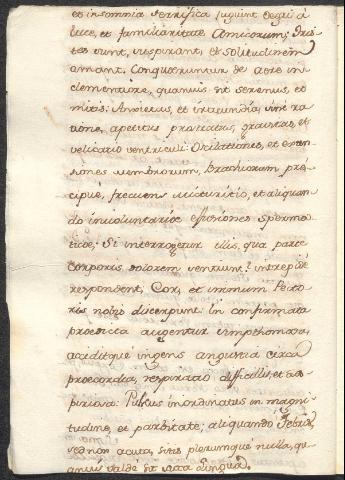 et insomnia terrifica fugiunt Aegri à
luce, et familiaritate Amicorum; Tris-
tes sunt, suspirant, et solitudinem
amant. Conqueruntur de aere in-
clementiae, quamvis sit serenus, et
mitis: Anxietas, et iracundia, sine ra-
tione, apetitus prostratus, gravitas, et
velicatio ventriculi. Oscitationes, et exten-
siones membrorum, brachiorum prae-
cipuè, frequens micturitio, et aliquan-
do involuntariae efusiones sperma-
ticae; Si interrogetur illis, qua parte
Corporis dolorem sentiunt? intrepidè
respondent, Cor, et intimum Pecto-
ris nobis discerpunt. in confirmata
praedicta augentur simpthomata,
acciditque ingens angustia circa
praecordia, respiratio dificilis, et sus-
piriosa: Pulsus inordinatus in magni-
tudine, et parbitate; aliquando Febris,
sed non acuta, sitis plerumque nulla, qu-
amvis valdè sit sicca lingua.